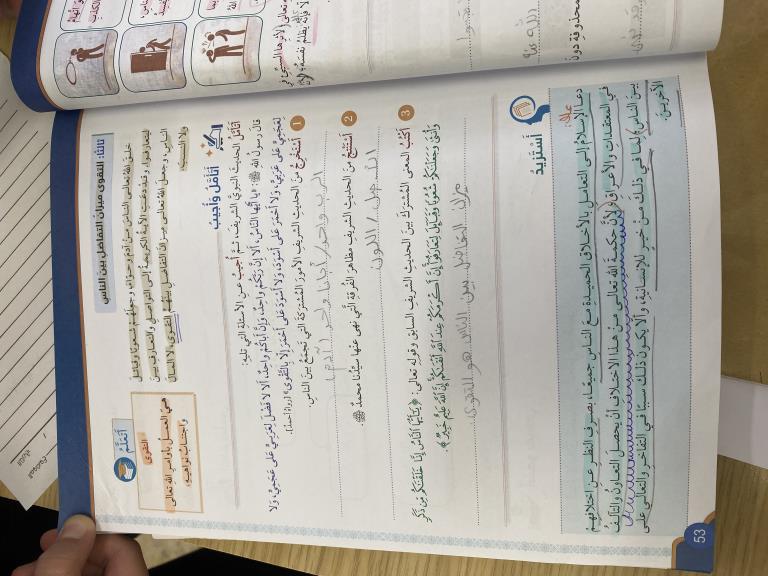 ثالثًا: التقوى ميزان التفاضل بين الناس
خلق الله تعالى الناس من آدم وحواء، وجعلهم شعوبًا وقبائل
ليتعارفوا، وقد دعت الآية الكريمة إلى التواصل والتعارف بين
الناس، وجعل الله تعالى ميزان التفاضل بينهم التقوى، لا المال
ولا النسب.
أتعلم
التقوى
هي العمل بأوامر الله تعالى
واجتناب نواهيه.
أتأمل وأجيب
أتأمل الحديث النبوي الشريف، ثم أجيب عن الأسئلة التي تليه:
قال رسول الله ﷺ: «يا أيها الناس، ألا إن ربكم واحد، وإن أباكم واحد، ألا لا فضل لعربي على عجمي، ولا
لعجمي على عربي، ولا أحمر على أسود، ولا أسود على أحمر إلا بالتقوى» [رواه أحمد].
1 أستخرج من الحديث الشريف الأمور المشتركة التي تجمع بين الناس.
الرب واحد / أبانا واحد (آدم)
2 أستنتج من الحديث الشريف مظاهر التفرقة التي نهى عنها سيدنا محمد ﷺ.
اللون
3 أكتب المعنى المشترك بين الحديث الشريف السابق وقوله تعالى: ﴿يَا أَيُّهَا النَّاسُ إِنَّا خَلَقْنَاكُم مِّن ذَكَرٍ
وَأُنثَىٰ وَجَعَلْنَاكُمْ شُعُوبًا وَقَبَائِلَ لِتَعَارَفُوا إِنَّ أَكْرَمَكُمْ عِندَ اللَّهِ أَتْقَاكُمْ إِنَّ اللَّهَ عَلِيمٌ خَبِيرٌ﴾.
ميزان التفاضل بين الناس هو التقوى
أستزيد
دعا الإسلام إلى التعامل بالأخلاق الحميدة مع الناس جميعًا، بصرف النظر عن اختلافهم
في المعتقدات والأعراق؛ لأن حكمة الله تعالى من هذا الاختلاف أن يحصل التعاون والتآلف
بين الناس؛ لما في ذلك من خير للإنسانية، وألا يكون ذلك سببًا في التفاخر والتعالي على
الآخرين.
53